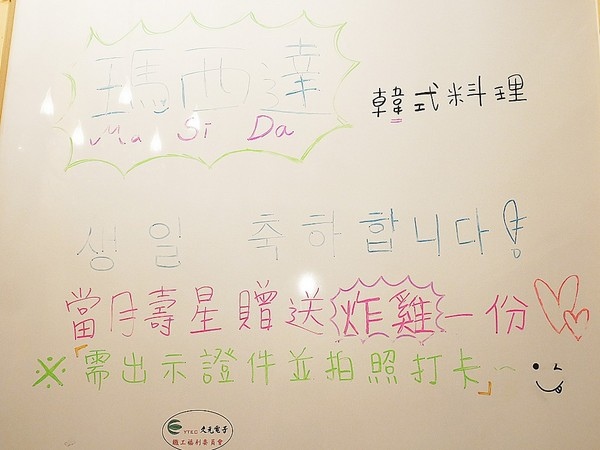 瑪西達 韓式料理
Ma Si Da
생일 축하합니다!
當月壽星贈送炸雞一份
※「需出示證件並拍照打卡」~
文元電子
職工福利委員會